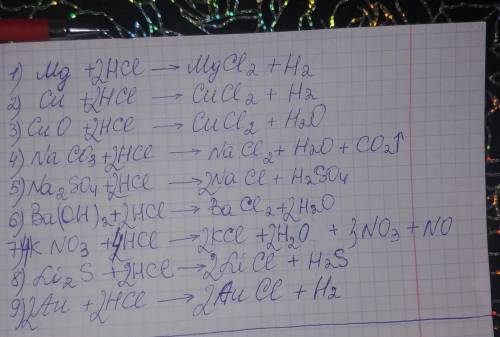 1) Mg + 2HCl → MgCl2 + H2
2) Cu + 2HCl → CuCl2 + H2
3) CuO + 2HCl → CuCl2 + H2O
4) NaCO3 + 2HCl → NaCl2 + H2O + CO2↑
5) Na2SO4 + 2HCl → 2NaCl + H2SO4
6) Ba(OH)2 + 2HCl → BaCl2 + 2H2O
7) 4K NO3 + 4HCl → 2KCl + 2H2O + 3NO3 + NO
8) Li2S + 2HCl → 2LiCl + H2S
9) 2Au + 2HCl → 2AuCl + H2